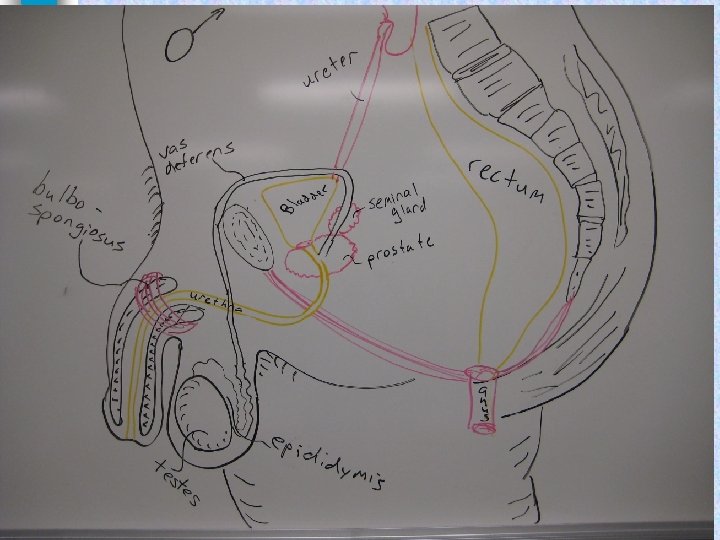 ureter
vas
deferens
rectum
bulbo-
spongiosus
Bladder
seminal
gland
prostate
urethra
epididymis
testes